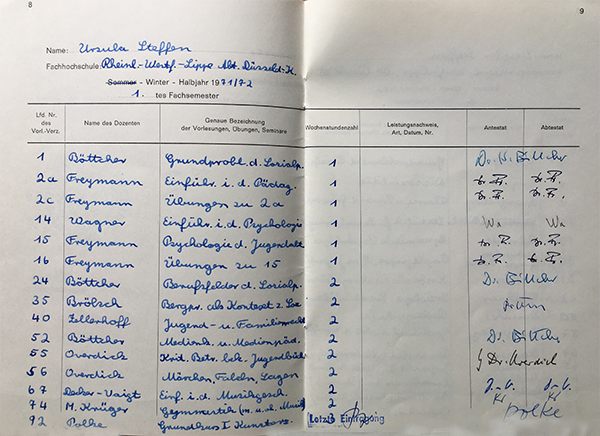 8
9
Name: Ursula Steffen
Fachhochschule Rheinl.-Westf.-Lippe Abt. Düsseld.-K.
Sommer - Winter - Halbjahr 1971/72
1. tes Fachsemester
Lfd. Nr. des Vorl.-Verz. Name des Dozenten Genaue Bezeichnung der Vorlesungen, Übungen, Seminare Wochenstundenzahl Leistungsnachweis, Art, Datum, Nr. Antestat Abtestat
1 Böttcher Grundprobl. d. Sozialp. 1 Dr. H. Böttcher
2a Freymann Einführ. i. d. Pädag. 1 Dr. Fr. Dr. Fr.
2c Freymann Übungen zu 2a 1 Dr. Fr. Dr. Fr.
14 Wagner Einführ. i. d. Psychologie 1 Wa Wa
15 Freymann Psychologie d. Jugendalt 1 Dr. Fr. Dr. Fr.
16 Freymann Übungen zu 15 1 Dr. Fr. Dr. Fr.
24 Böttcher Berufsfelder d. Sozialp. 2 Dr. Böttcher
35 Brölsch Bergpr. als Kontext z. 2
40 Zellerhoff Jugend- u. Familienrecht 2
52 Böttcher Medienk. u. Medienpäd. 2 Dr. Böttcher
55 Overdick Krit. Betr. Jugendbüch 2 Dr. Overdick
56 Overdick Märchen, Fabeln, Sagen 2
67 Decker-Voigt Einf. i. d. Musikgesch. 2 D.-V. D.-V.
74 M. Krüger (m. u. d. Musik) 2 Kr Kr
92 Polke Grundkurs I Kunsterz. 2 Polke
Letzte Eintragung